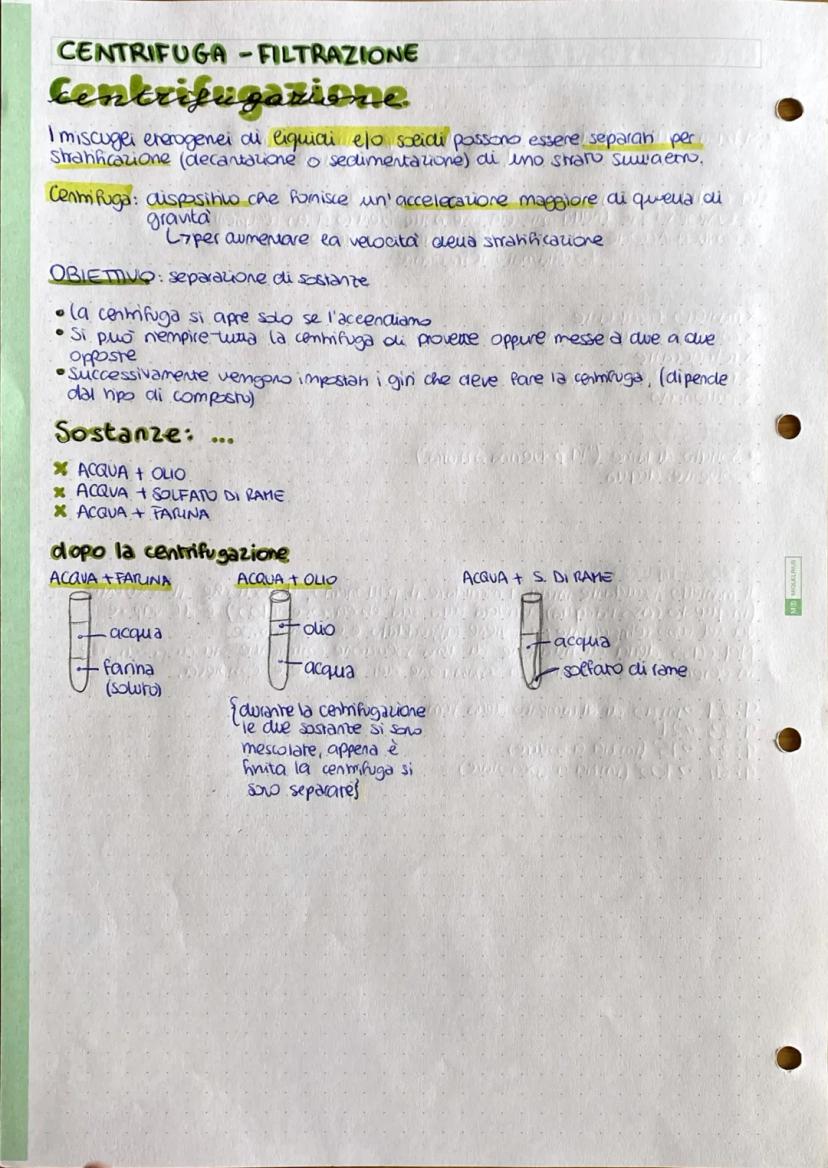 CENTRIFUGA - FILTRAZIONE
Centrifugazione
I miscugli eterogenei di liquidi e/o solidi possono essere separati per
stratificazione (decantazione o sedimentazione) di uno strato sull'altro.
Centrifuga: dispositivo che fornisce un'accelerazione maggiore di quella di
gravità
↳ per aumentare la velocità della stratificazione
OBIETTIVO: separazione di sostanze
• la centrifuga si apre solo se l'accendiamo
• Si può riempire tutta la centrifuga di provette oppure messe a due a due
opposte
• Successivamente vengono impostati i giri che deve fare la centrifuga, (dipende
dal tipo di composto)
Sostanze: ...
x ACQUA + OLIO
x ACQUA + SOLFATO DI RAME
x ACQUA + FARINA
dopo la centrifugazione
ACQUA + FARINA
acqua
farina
(soluto)
ACQUA + OLIO
olio
acqua
{durante la centrifugazione
le due sostante si sono
mescolate, appena è
finita la centrifuga si
sono separate}
ACQUA + S. DI RAME
acqua
solfato di rame